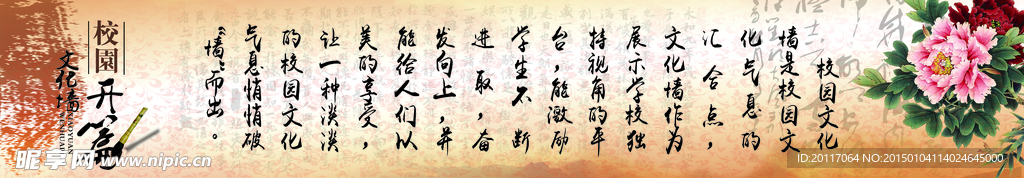 校园文化
墙是校园文
化气息的
汇合点，
文化墙作为
展示学校独
持视角的平
台，能激励
学生不断
进取，奋
发向上，并
能给人们以
美的享受，
让一种淡淡
的校园文化
气息悄悄破
“墙”而出。
校園
开篇
文化墙
昵享网 www.nipic.cn
ID:20117064 NO:20150104114024645000